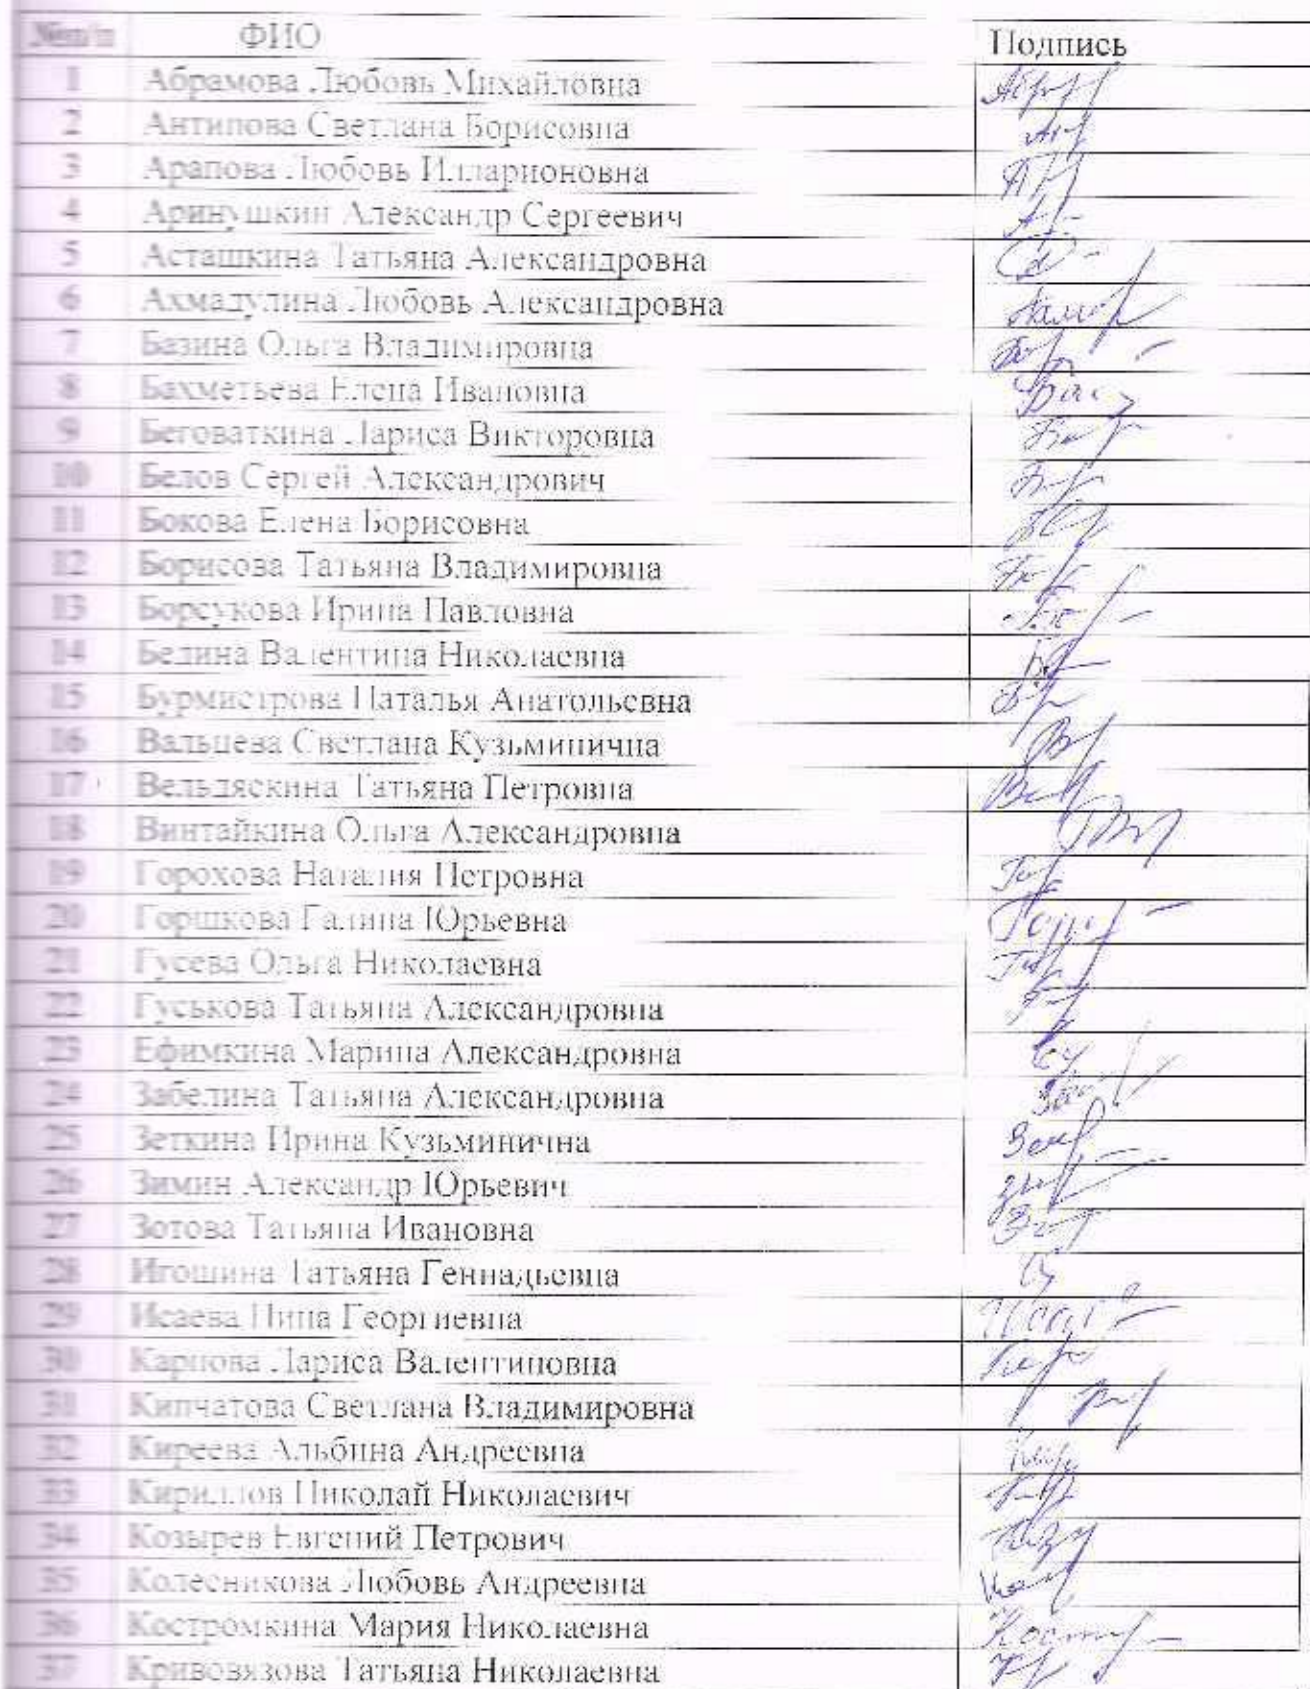 №п/п ФИО Подпись
1 Абрамова Любовь Михайловна
2 Антипова Светлана Борисовна
3 Арапова Любовь Илларионовна
4 Аринушкин Александр Сергеевич
5 Асташкина Татьяна Александровна
6 Ахмадулина Любовь Александровна
7 Базина Ольга Владимировна
8 Бахметьева Елена Ивановна
9 Беговаткина Лариса Викторовна
10 Белов Сергей Александрович
11 Бокова Елена Борисовна
12 Борисова Татьяна Владимировна
13 Борсукова Ирина Павловна
14 Бедина Валентина Николаевна
15 Бурмистрова Наталья Анатольевна
16 Вальцева Светлана Кузьминична
17 Вельдяскина Татьяна Петровна
18 Винтайкина Ольга Александровна
19 Горохова Наталия Петровна
20 Горшкова Галина Юрьевна
21 Гусева Ольга Николаевна
22 Гуськова Татьяна Александровна
23 Ефимкина Марина Александровна
24 Забелина Татьяна Александровна
25 Зеткина Ирина Кузьминична
26 Зимин Александр Юрьевич
27 Зотова Татьяна Ивановна
28 Игошина Татьяна Геннадьевна
29 Исаева Нина Георгиевна
30 Карпова Лариса Валентиновна
31 Кипчатова Светлана Владимировна
32 Киреева Альбина Андреевна
33 Кириллов Николай Николаевич
34 Козырев Евгений Петрович
35 Колесникова Любовь Андреевна
36 Костромкина Мария Николаевна
37 Кривовязова Татьяна Николаевна